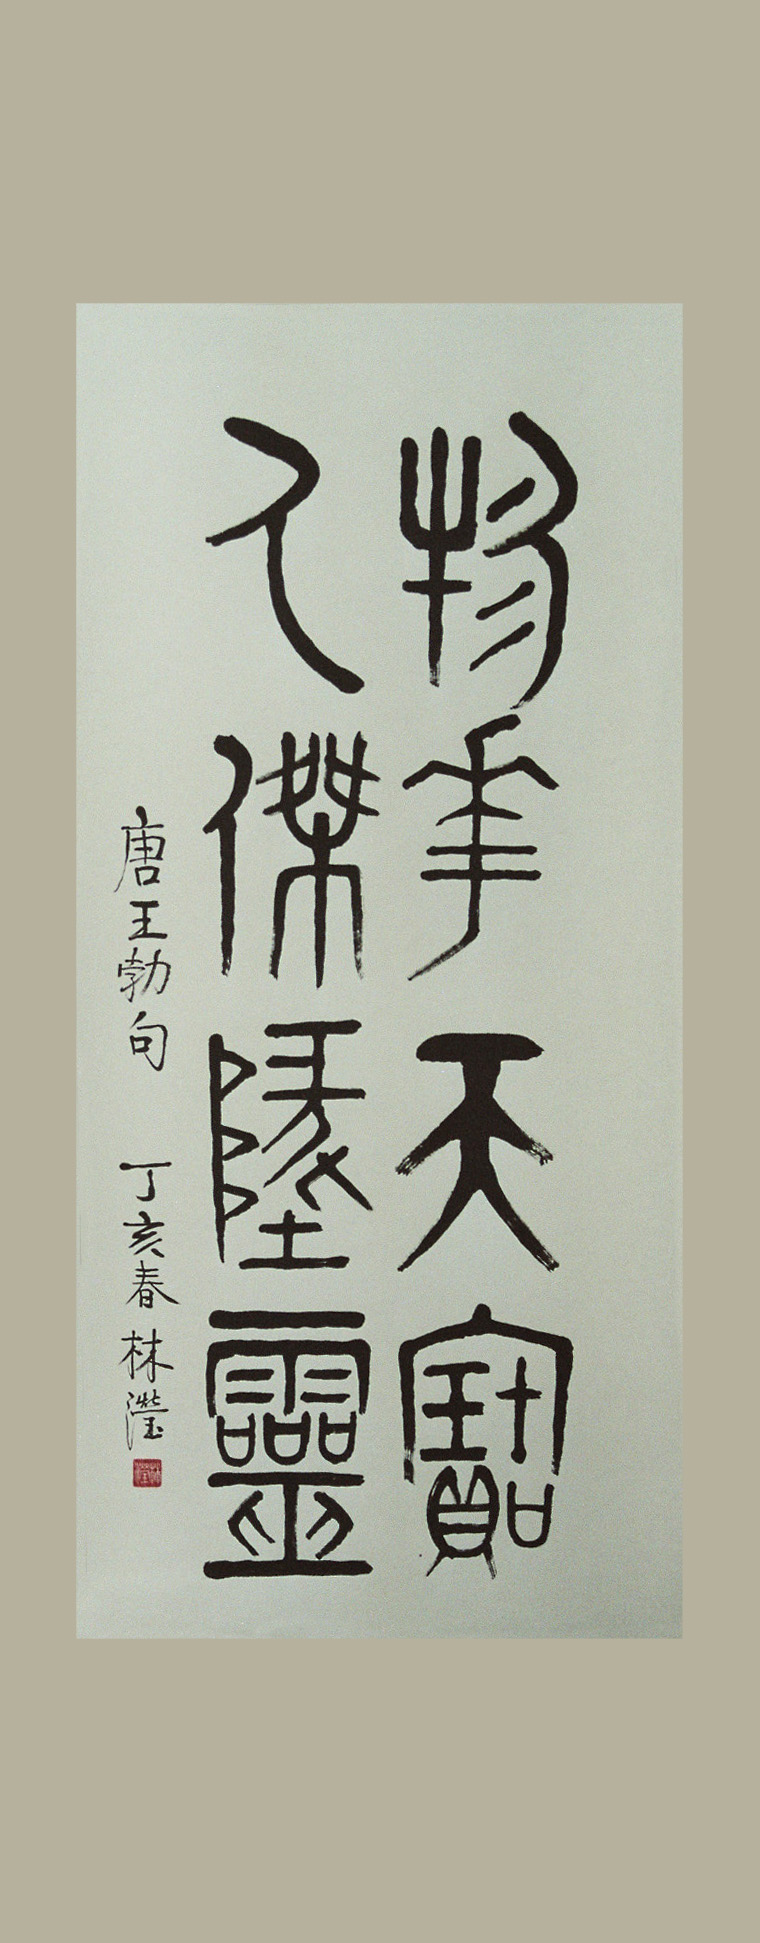 物華天寶
人傑墬靈
唐王勃句 丁亥春 林瀅